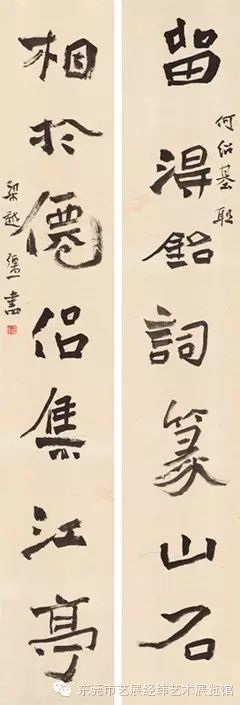 何绍基联
留得銘詞篆山石
相於僊侶集江亭
梁越
書
东莞市艺展经纬艺术展览馆